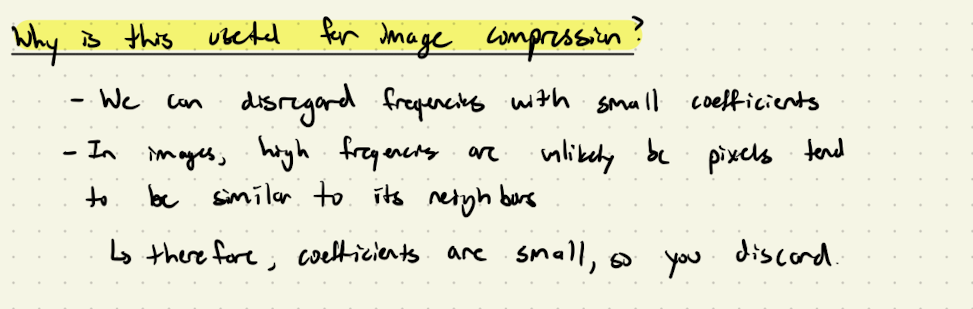 Why is this useful for image compression?
- We can disregard freqencies with small coefficients
- In images, high freqencies are unlikely bc pixels tend
to be similar to its neighbors
↳ therefore, coefficients are small, so you discard.